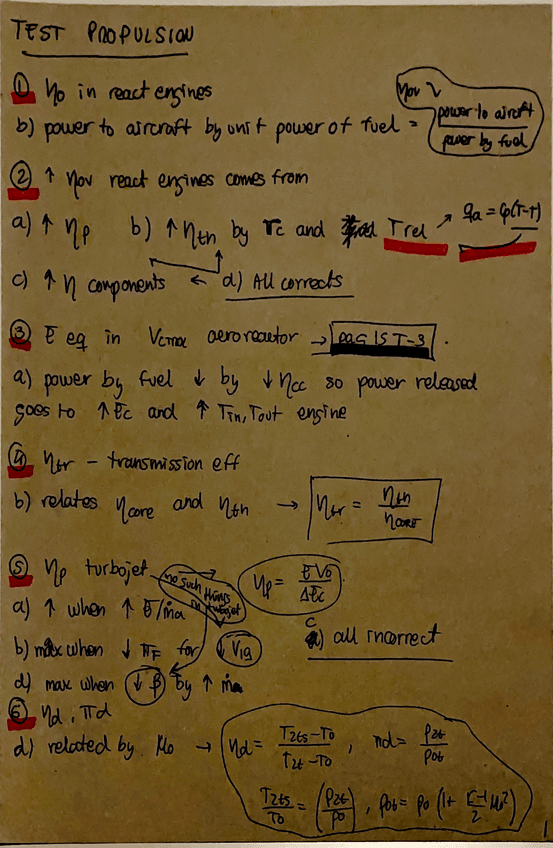 TEST PROPULSION
① η₀ in react engines
ηov ↘ power to aircraft / power by fuel
b) power to aircraft by unit power of fuel =
② ↑ ηov react engines comes from
a) ↑ ηp b) ↑ ηth by πc and Trel → qa = Cp(T-T)
c) ↑ η components ← d) All corrects
③ E eq in Vctrol aeroreactor → PAG 15 T-3
a) power by fuel ↓ by ↓ ηcc so power released
goes to ↑ Ec and ↑ Tin, Tout engine
④ ηtr – transmission eff
b) relates ηcore and ηth → ηtr = ηth / ηCORE
⑤ ηp turbojet no such things in turbojet ηp = E V₀ / ΔEc
a) ↑ when ↑ E/ṁa
b) max when ↓ πF for ↓ V19 c) all incorrect
d) max when ↓ β by ↑ ṁa
⑥ ηd, πd
d) related by M₀ → ηd = T2ts - T₀ / T2t - T₀ , πd = P2t / P0t
T2ts / T₀ = (P2t / P₀) , P0t = P₀ (1 + K-1 / 2 M₀²)
1